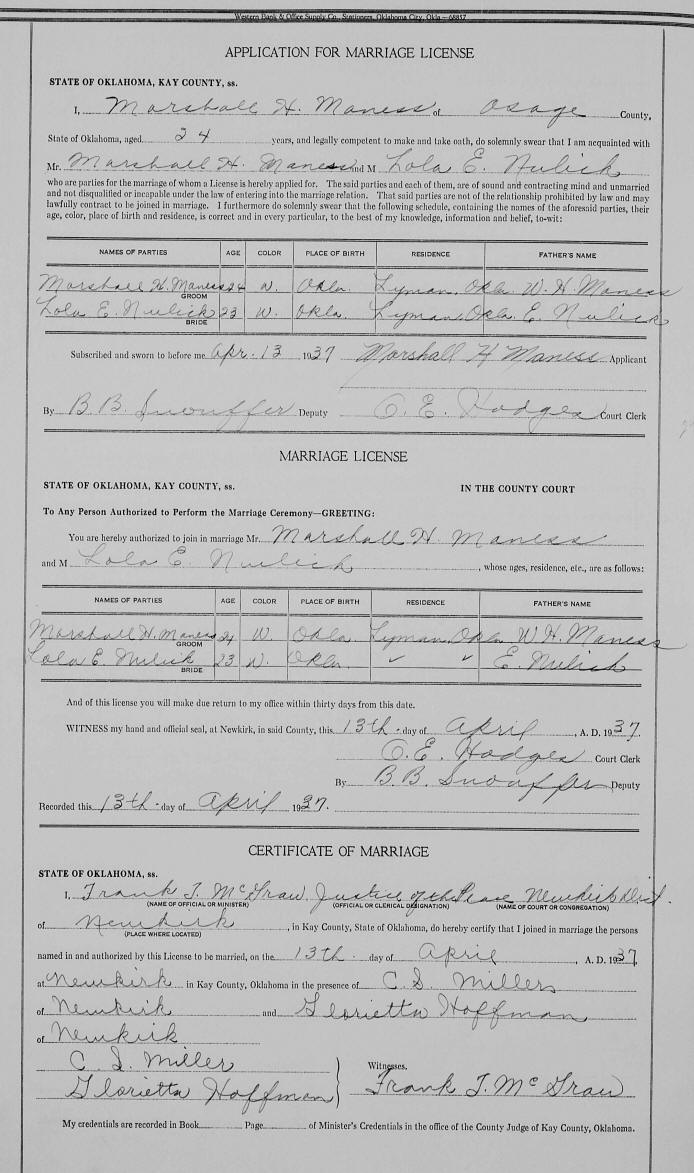 Western Bank & Office Supply Co., Stationers, Oklahoma City, Okla.—68857
APPLICATION FOR MARRIAGE LICENSE
STATE OF OKLAHOMA, KAY COUNTY, ss.
I, Marshall H. Maness of Osage County,
State of Oklahoma, aged 24 years, and legally competent to make and take oath, do solemnly swear that I am acquainted with
Mr. Marshall H. Maness and M Lola E. Nulick
who are parties for the marriage of whom a License is hereby applied for. The said parties and each of them, are of sound and contracting mind and unmarried
and not disqualified or incapable under the law of entering into the marriage relation. That said parties are not of the relationship prohibited by law and may
lawfully contract to be joined in marriage. I furthermore do solemnly swear that the following schedule, containing the names of the aforesaid parties, their
age, color, place of birth and residence, is correct and in every particular, to the best of my knowledge, information and belief, to-wit:
NAMES OF PARTIES AGE COLOR PLACE OF BIRTH RESIDENCE FATHER'S NAME
Marshall H. Maness 24 W. Okla. Lyman, Okla. W. H. Maness
GROOM
Lola E. Nulick 23 W. Okla. Lyman, Okla. E. Nulick
BRIDE
Subscribed and sworn to before me Apr. 13 1937 Marshall H Maness Applicant
By B. B. Snouffer Deputy O. E. Hodges Court Clerk
MARRIAGE LICENSE
STATE OF OKLAHOMA, KAY COUNTY, ss. IN THE COUNTY COURT
To Any Person Authorized to Perform the Marriage Ceremony—GREETING:
You are hereby authorized to join in marriage Mr. Marshall H. Maness
and M Lola E. Nulick, whose ages, residence, etc., are as follows:
NAMES OF PARTIES AGE COLOR PLACE OF BIRTH RESIDENCE FATHER'S NAME
Marshall H. Maness 24 W. Okla. Lyman, Okla. W. H. Maness
GROOM
Lola E. Nulick 23 W. Okla. ✓ ✓ E. Nulick
BRIDE
And of this license you will make due return to my office within thirty days from this date.
WITNESS my hand and official seal, at Newkirk, in said County, this 13th day of April, A. D. 1937.
O. E. Hodges Court Clerk
By B. B. Snouffer Deputy
Recorded this 13th day of April 1937.
CERTIFICATE OF MARRIAGE
STATE OF OKLAHOMA, ss.
I, Frank T. McGraw, Justice of the Peace Newkirk Dist.
(NAME OF OFFICIAL OR MINISTER) (OFFICIAL OR CLERICAL DESIGNATION) (NAME OF COURT OR CONGREGATION)
of Newkirk, in Kay County, State of Oklahoma, do hereby certify that I joined in marriage the persons
(PLACE WHERE LOCATED)
named in and authorized by this License to be married, on the 13th day of April, A. D. 1937
at Newkirk in Kay County, Oklahoma in the presence of C. S. Millers
of Newkirk and Glorietta Hoffman
of Newkirk
C. S. Miller
Witnesses.
Glorietta Hoffman Frank T. McGraw
My credentials are recorded in Book Page of Minister's Credentials in the office of the County Judge of Kay County, Oklahoma.